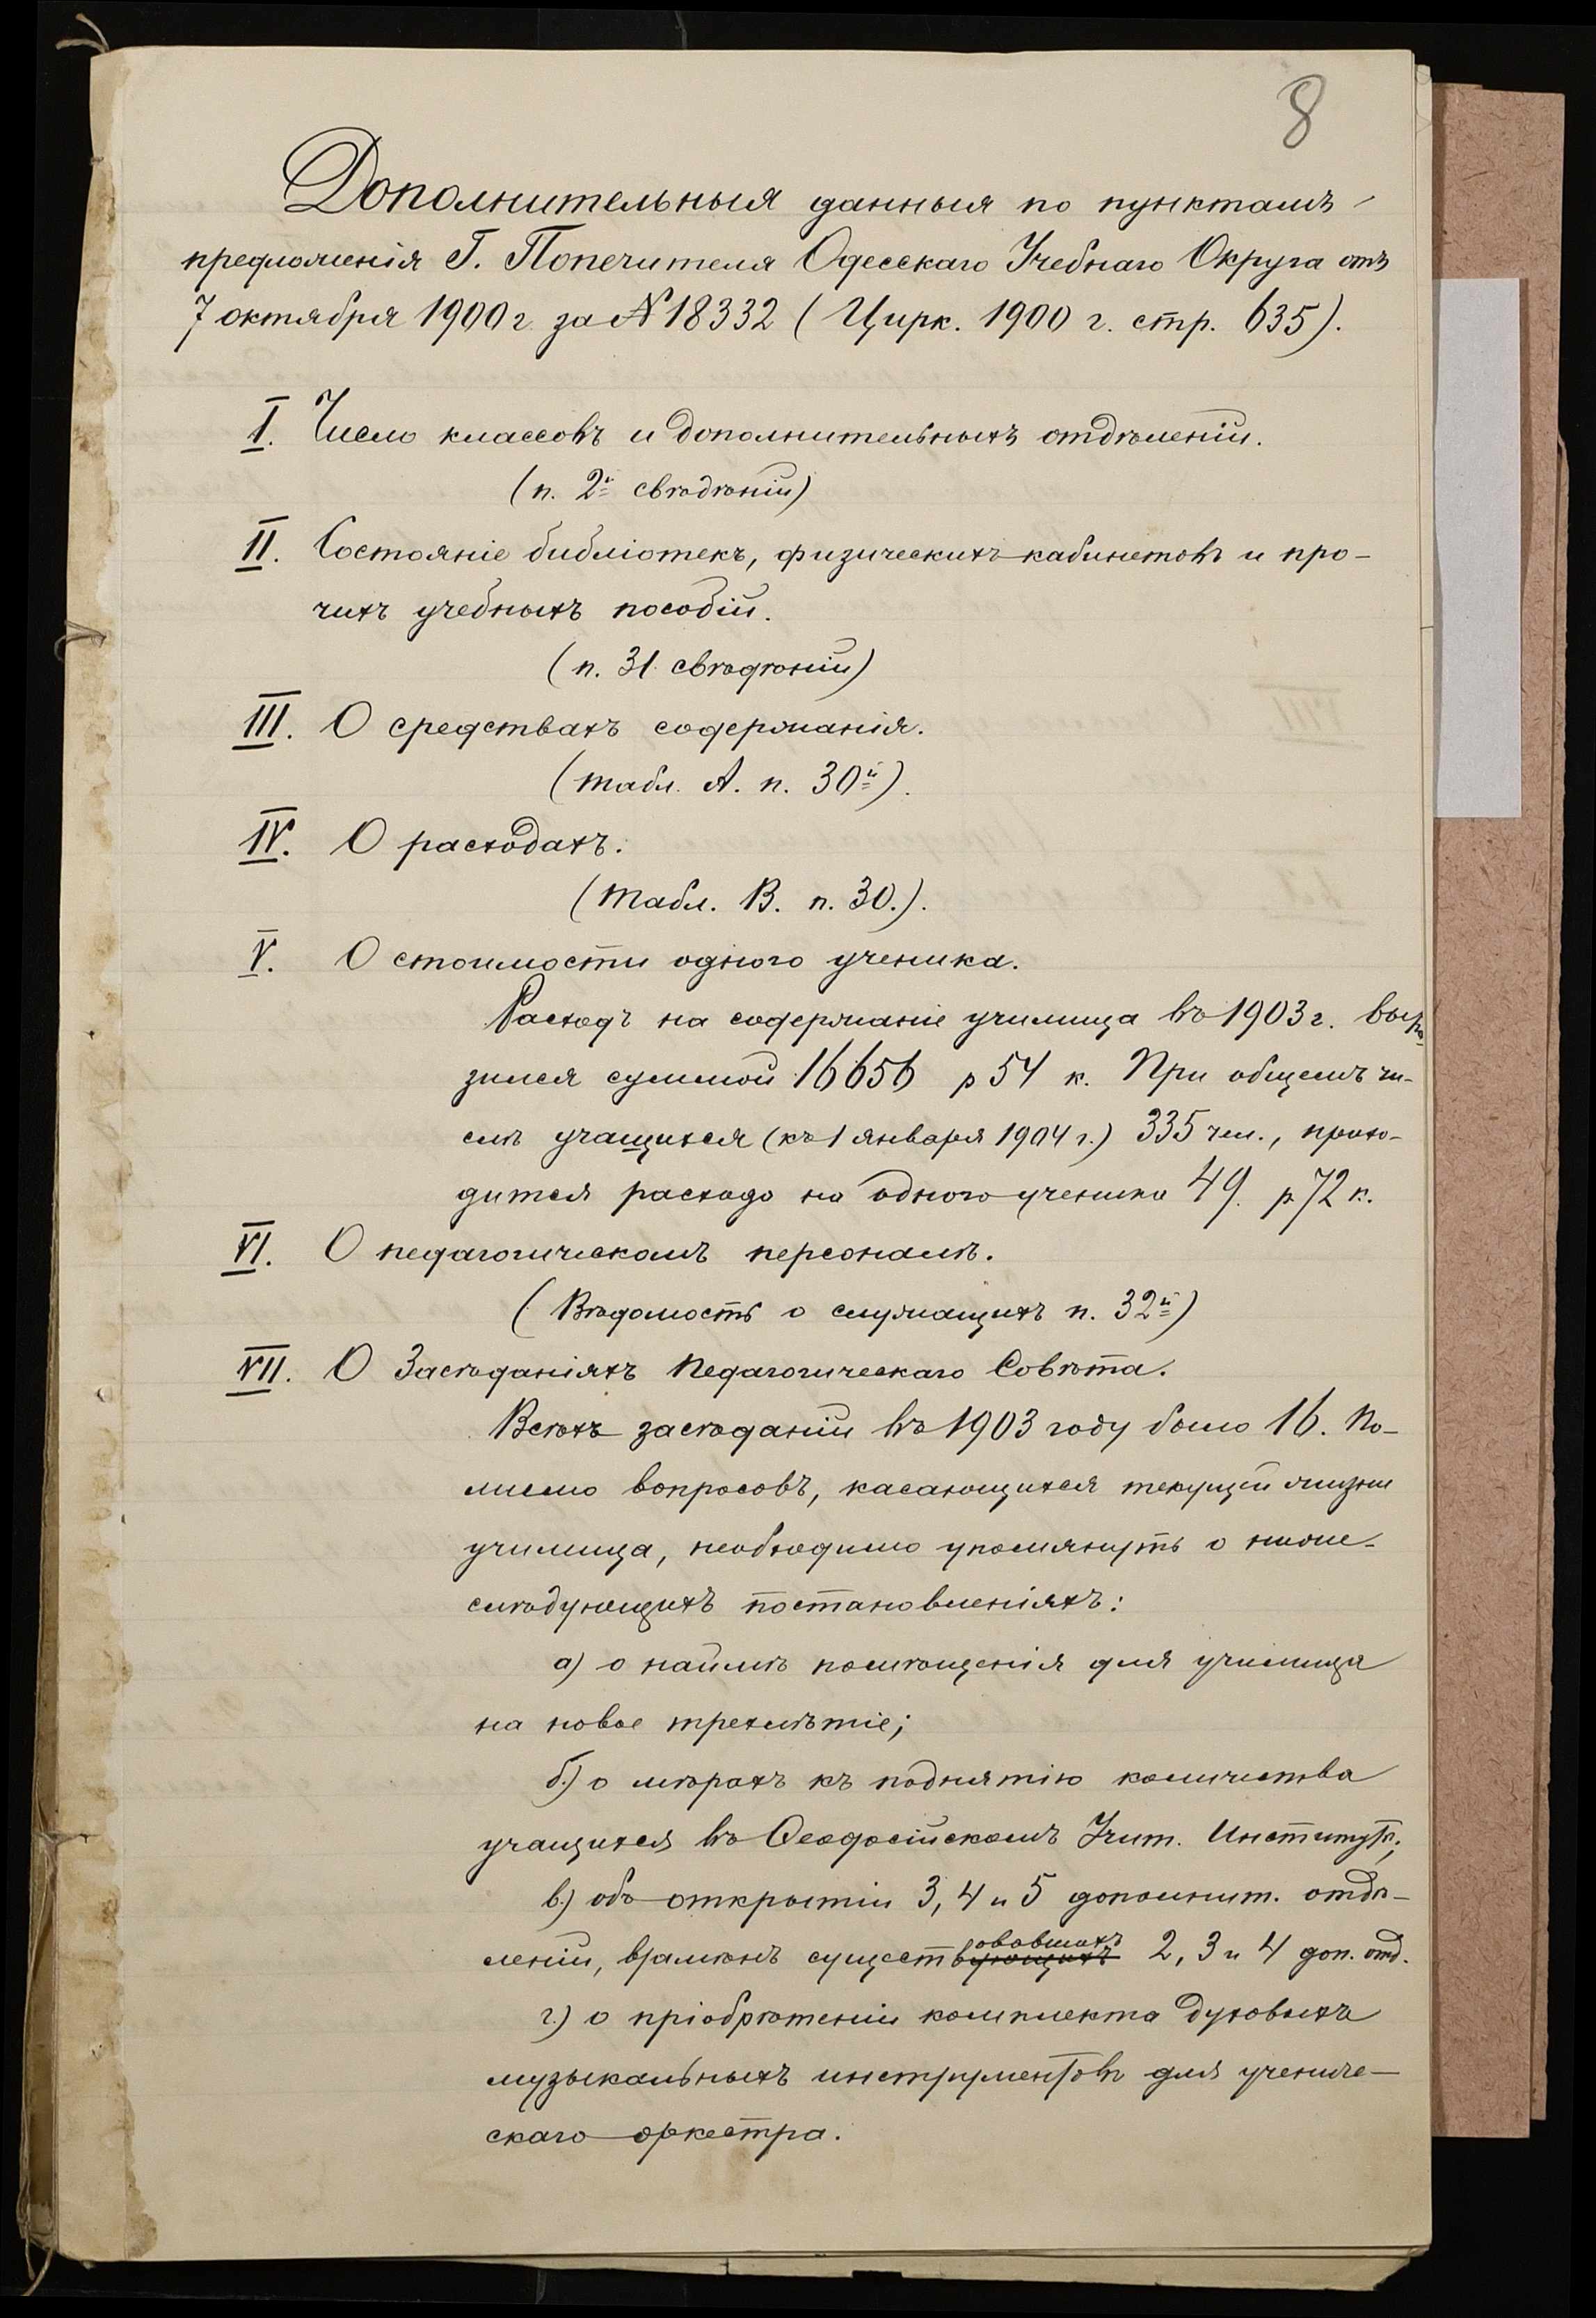 8
Дополнительныя данныя по пунктамъ
предложенія Г. Попечителя Одесскаго Учебнаго Округа отъ
7 октября 1900 г. за № 18332 (Цирк. 1900 г. стр. 635).
I. Число классовъ и дополнительныхъ отдѣленій.
(п. 2й свѣдѣній)
II. Состояніе библіотекъ, физическихъ кабинетовъ и про-
чихъ учебныхъ пособій.
(п. 31 свѣдѣній)
III. О средствахъ содержанія.
(табл. А. п. 30й).
IV. О расходахъ.
(табл. В. п. 30.).
V. О стоимости одного ученика.
Расходъ на содержаніе училища въ 1903 г. выра-
зился суммой 16656 р 54 к. При общемъ чи-
слѣ учащихся (къ 1 января 1904 г.) 335 чел., прихо-
дится расхода на одного ученика 49. р 72 к.
VI. О педагогическомъ персоналѣ.
(Вѣдомость о служащихъ п. 32й)
VII. О Засѣданіяхъ Педагогическаго Совѣта.
Всѣхъ засѣданій въ 1903 году было 16. По-
мимо вопросовъ, касающихся текущей жизни
училища, необходимо упомянуть о ниже-
слѣдующихъ постановленіяхъ:
а) о наймѣ помѣщенія для училища
на новое трехлѣтіе;
б.) о мѣрахъ къ поднятію количества
учащихся въ Ѳеодосійскомъ Учит. Институтѣ;
в.) объ открытіи 3, 4 и 5 дополнит. отдѣ-
овавшихъ
леній, взамѣнъ существующихъ 2, 3 и 4 доп. отд.
г.) о пріобрѣтеніи комплекта духовыхъ
музыкальныхъ инструментовъ для учениче-
скаго оркестра.